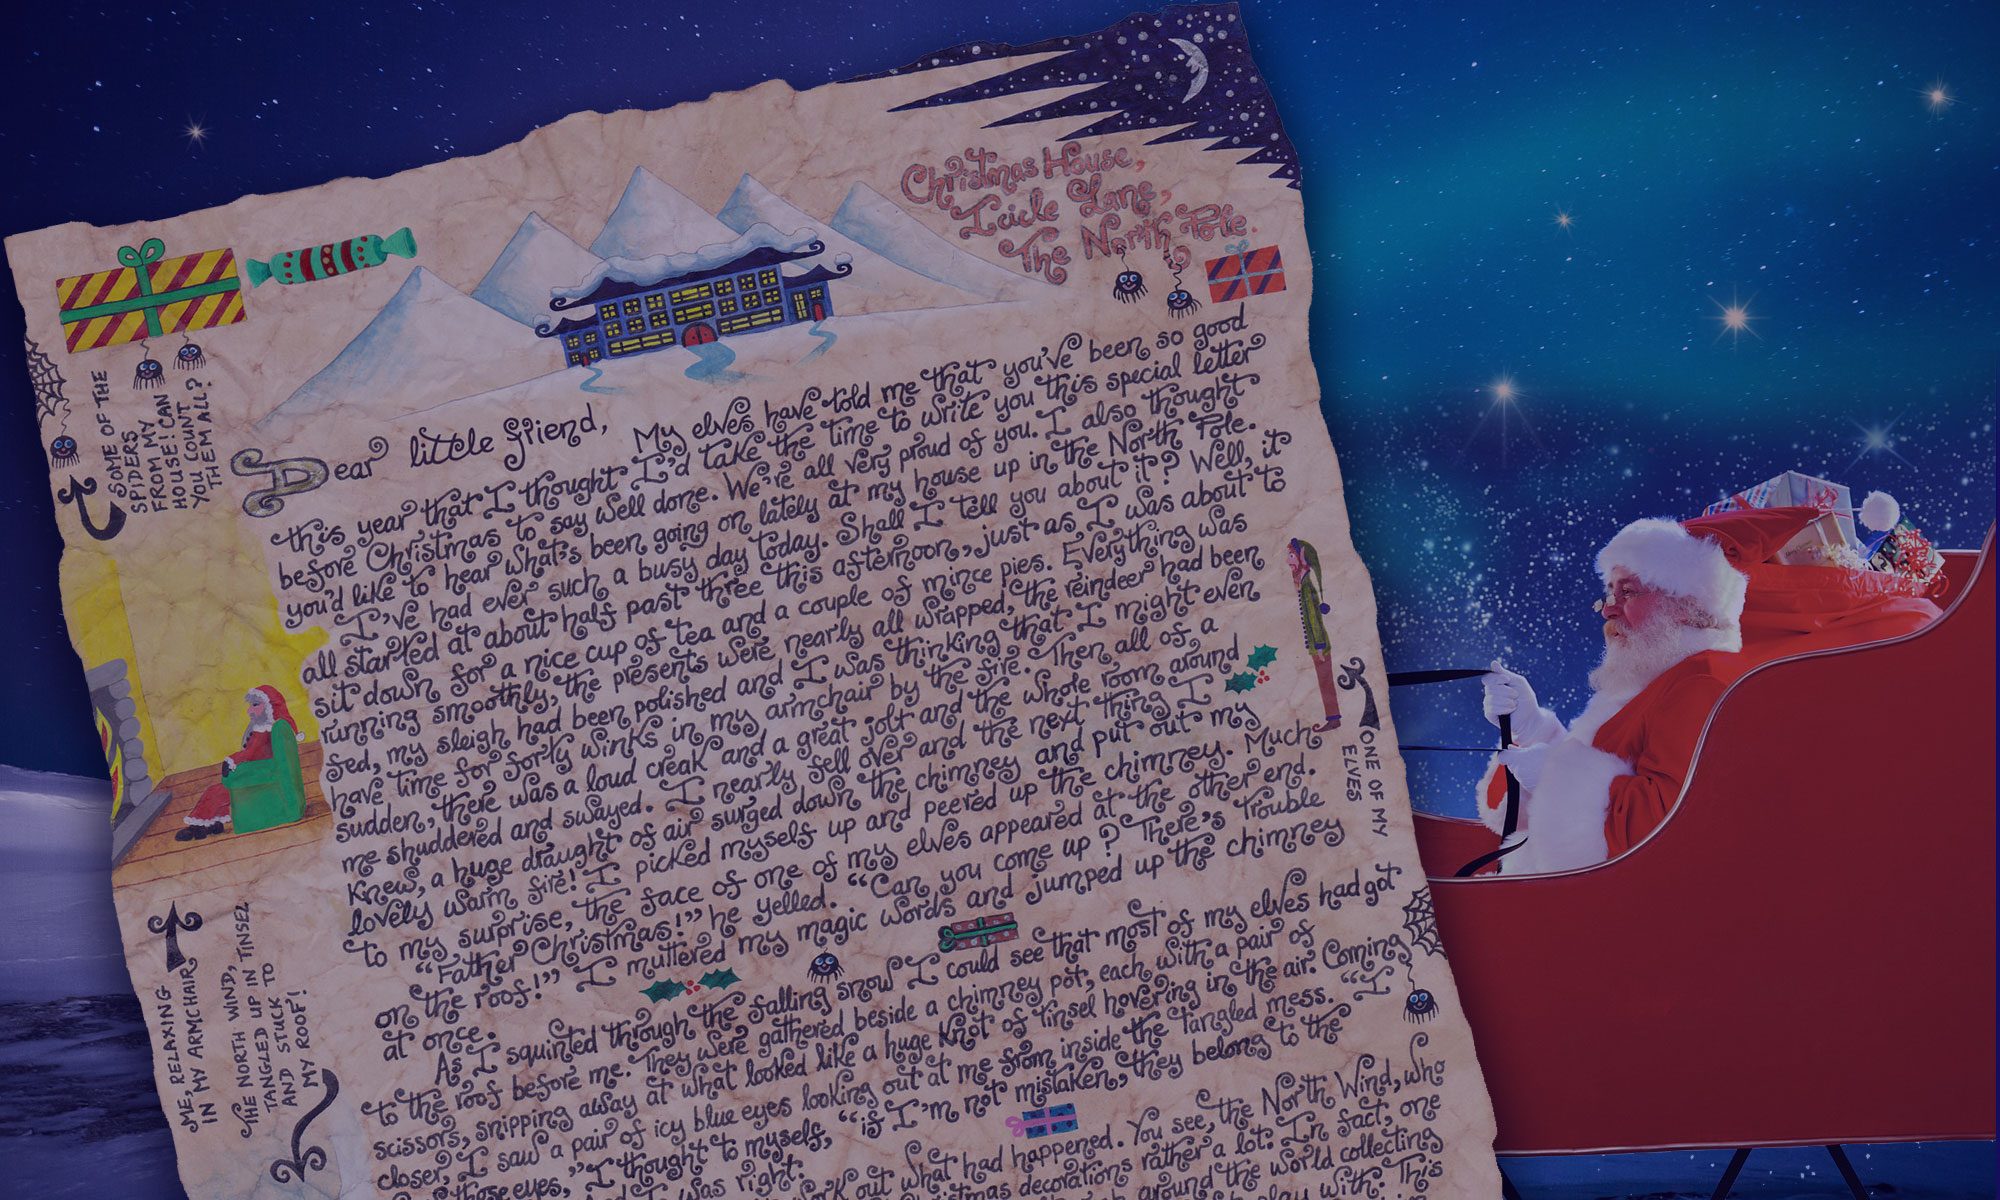 Christmas House,
Icicle Lane,
The North Pole.
SOME OF THE
SPIDERS
FROM MY
HOUSE! CAN
YOU COUNT
THEM ALL?
Dear little friend, My elves have told me that you've been so good
this year that I thought I'd take the time to write you this special letter
before Christmas to say well done. We're all very proud of you. I also thought
you'd like to hear what's been going on lately at my house up in the North Pole.
I've had ever such a busy day today. Shall I tell you about it? Well, it
all started at about half past three this afternoon, just as I was about to
sit down for a nice cup of tea and a couple of mince pies. Everything was
running smoothly, the presents were nearly all wrapped, the reindeer had been
fed, my sleigh had been polished and I was thinking that I might even
have time for forty winks in my armchair by the fire. Then all of a
sudden, there was a loud creak and a great jolt and the whole room around
me shuddered and swayed. I nearly fell over and the next thing I
knew, a huge draught of air surged down the chimney and put out my
lovely warm fire! I picked myself up and peered up the chimney. Much
to my surprise, the face of one of my elves appeared at the other end.
"Father Christmas!" he yelled. "Can you come up? There's trouble
on the roof!" I muttered my magic words and jumped up the chimney
at once.
As I squinted through the falling snow I could see that most of my elves had got
to the roof before me. They were gathered beside a chimney pot, each with a pair of
scissors, snipping away at what looked like a huge knot of tinsel hovering in the air. Coming
closer, I saw a pair of icy blue eyes looking out at me from inside the tangled mess. "I
those eyes," I thought to myself, "if I'm not mistaken, they belong to the
And I was right.
work out what had happened. You see, the North Wind, who
Christmas decorations rather a lot. In fact, one
around the world collecting
play with. This
ONE OF MY
ELVES
ME, RELAXING
IN MY ARMCHAIR
THE NORTH WIND,
TANGLED UP IN TINSEL
AND STUCK TO
MY ROOF!